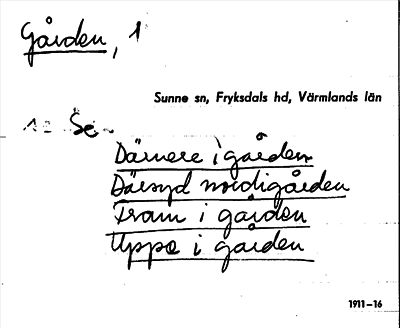 Gården, 1
Sunne sn, Fryksdals hd, Värmlands län
Se
Därnere i gården
nordigården
Fram i gården
Uppe i gården
1911-16